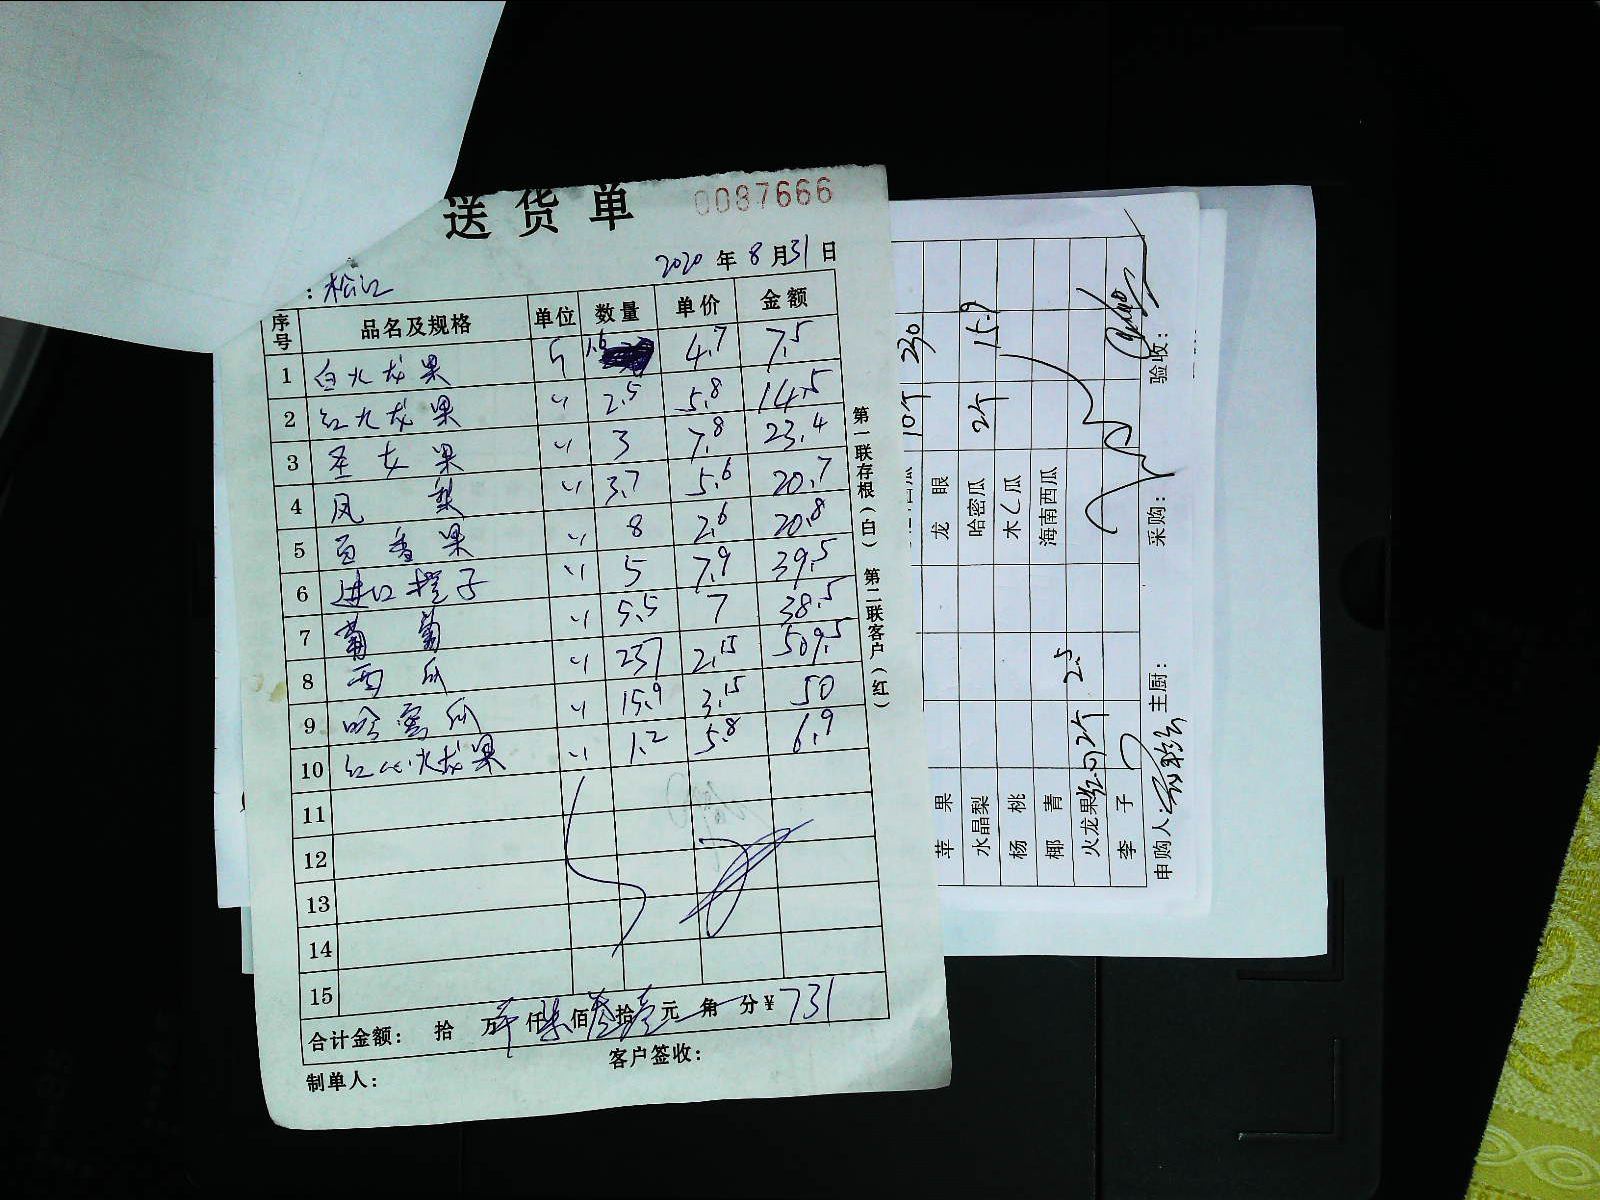 送货单 0087666
2020 年 8 月 31 日
: 松江
序号 品名及规格 单位 数量 单价 金额
1 白火龙果 斤 1.6 4.7 7.5
2 红火龙果 〃 2.5 5.8 14.5
3 圣女果 〃 3 7.8 23.4
4 凤梨 〃 3.7 5.6 20.7
5 百香果 〃 8 2.6 20.8
6 进口橙子 〃 5 7.9 39.5
7 葡萄 〃 5.5 7 38.5
8 西瓜 〃 237 2.15 509.5
9 哈密瓜 〃 15.9 3.15 50
10 红心火龙果 〃 1.2 5.8 6.9
11
12
13
14
15
合计金额: 拾 万 仟 柒 佰 叁 拾 壹 元 角 分 ¥ 731
制单人: 客户签收:
第一联存根(白) 第二联客户(红)
10个 230
苹果 龙眼
水晶梨 哈密瓜 2个 15.9
杨桃 木瓜
椰青 海南西瓜
火龙果 红心2个 2.5
李子
申购人: 主厨: 采购: 验收: